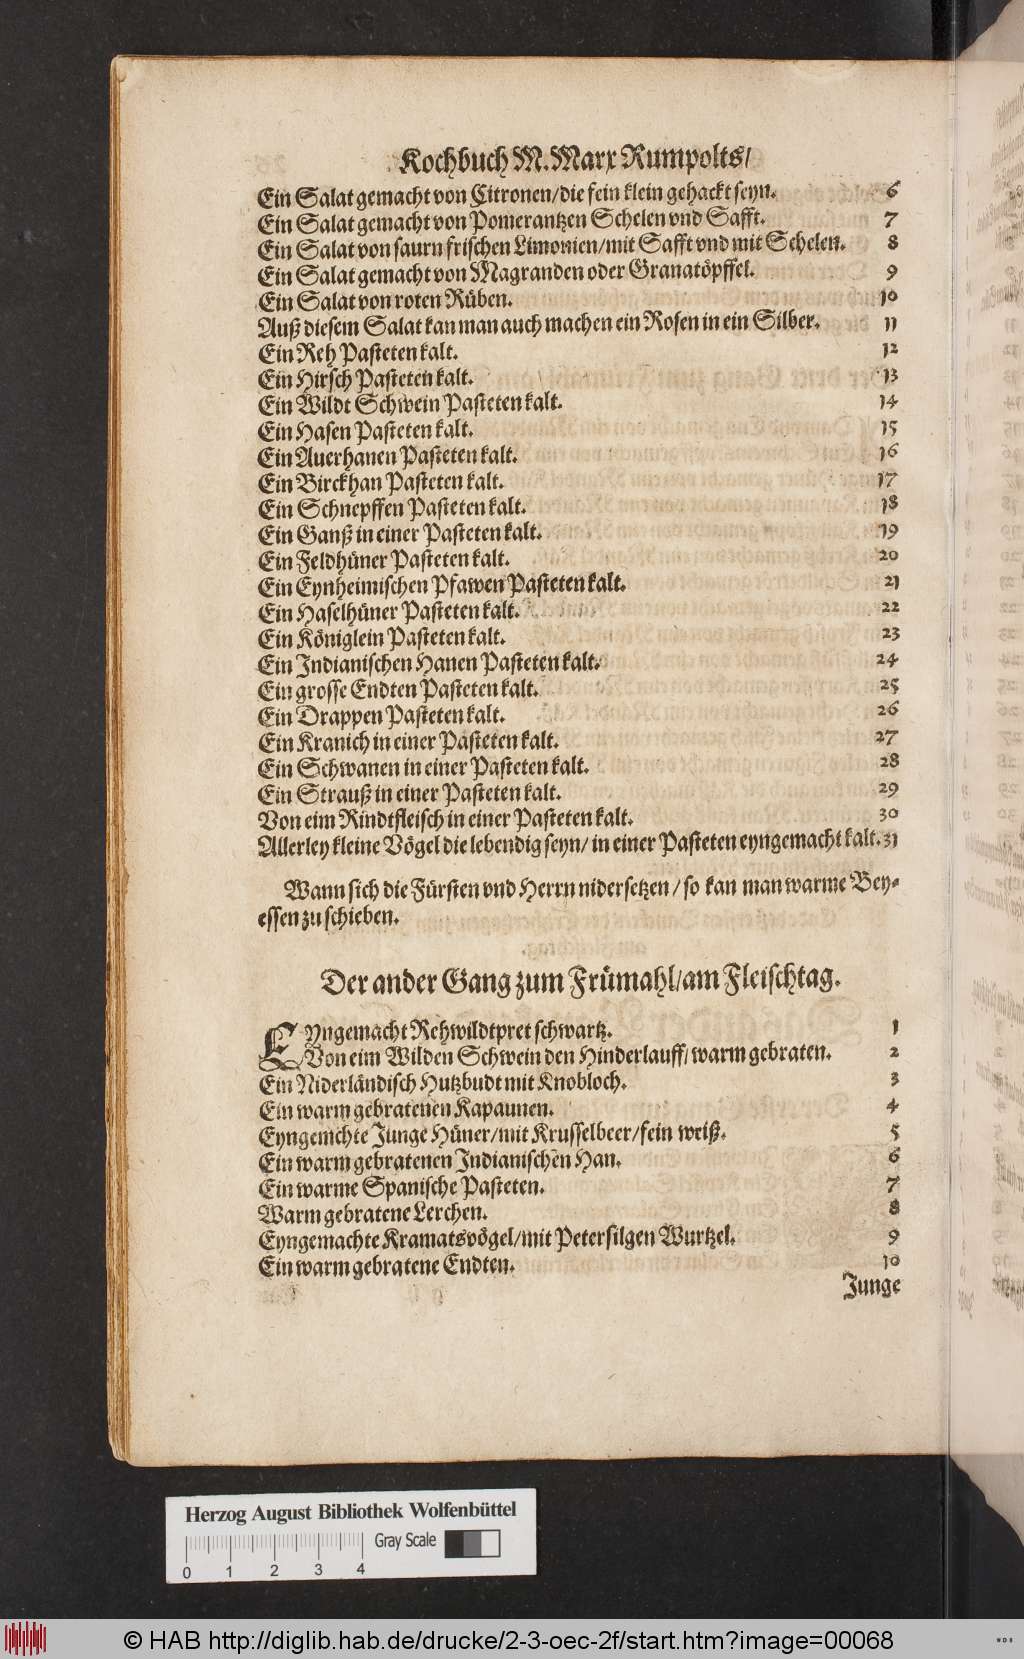 Kochbuch M. Marx Rumpolts/
Ein Salat gemacht von Citronen/die fein klein gehackt seyn. 6
Ein Salat gemacht von Pomerantzen Schelen vnd Safft. 7
Ein Salat von saurn frischen Limonien/mit Safft vnd mit Schelen. 8
Ein Salat gemacht von Magranden oder Granatöpffel. 9
Ein Salat von roten Rüben. 10
Auß diesem Salat kan man auch machen ein Rosen in ein Silber. 11
Ein Reh Pasteten kalt. 12
Ein Hirsch Pasteten kalt. 13
Ein Wildt Schwein Pasteten kalt. 14
Ein Hasen Pasteten kalt. 15
Ein Auerhanen Pasteten kalt. 16
Ein Birckhan Pasteten kalt. 17
Ein Schnepffen Pasteten kalt. 18
Ein Ganß in einer Pasteten kalt. 19
Ein Feldhüner Pasteten kalt. 20
Ein Eynheimischen Pfawen Pasteten kalt. 21
Ein Haselhüner Pasteten kalt. 22
Ein Königlein Pasteten kalt. 23
Ein Indianischen Hanen Pasteten kalt. 24
Ein grosse Endten Pasteten kalt. 25
Ein Drappen Pasteten kalt. 26
Ein Kranich in einer Pasteten kalt. 27
Ein Schwanen in einer Pasteten kalt. 28
Ein Strauß in einer Pasteten kalt. 29
Von eim Rindtfleisch in einer Pasteten kalt. 30
Allerley kleine Vögel die lebendig seyn/ in einer Pasteten eyngemacht kalt. 31
Wann sich die Fürsten vnd Herrn nidersetzen / so kan man warme Bey-
essen zu schieben.
Der ander Gang zum Frümahl/am Fleischtag.
Eyngemacht Rehwildtpret schwartz. 1
Von eim Wilden Schwein den Hinderlauff/warm gebraten. 2
Ein Niderländisch Hutzbudt mit Knobloch. 3
Ein warm gebratenen Kapaunen. 4
Eyngemchte Junge Hüner/mit Krusselbeer/fein weiß. 5
Ein warm gebratenen Indianischen Han. 6
Ein warme Spanische Pasteten. 7
Warm gebratene Lerchen. 8
Eyngemachte Kramatsvögel/mit Petersilgen Wurtzel. 9
Ein warm gebratene Endten. 10
Junge
Herzog August Bibliothek Wolfenbüttel
Gray Scale
0 1 2 3 4
© HAB http://diglib.hab.de/drucke/2-3-oec-2f/start.htm?image=00068